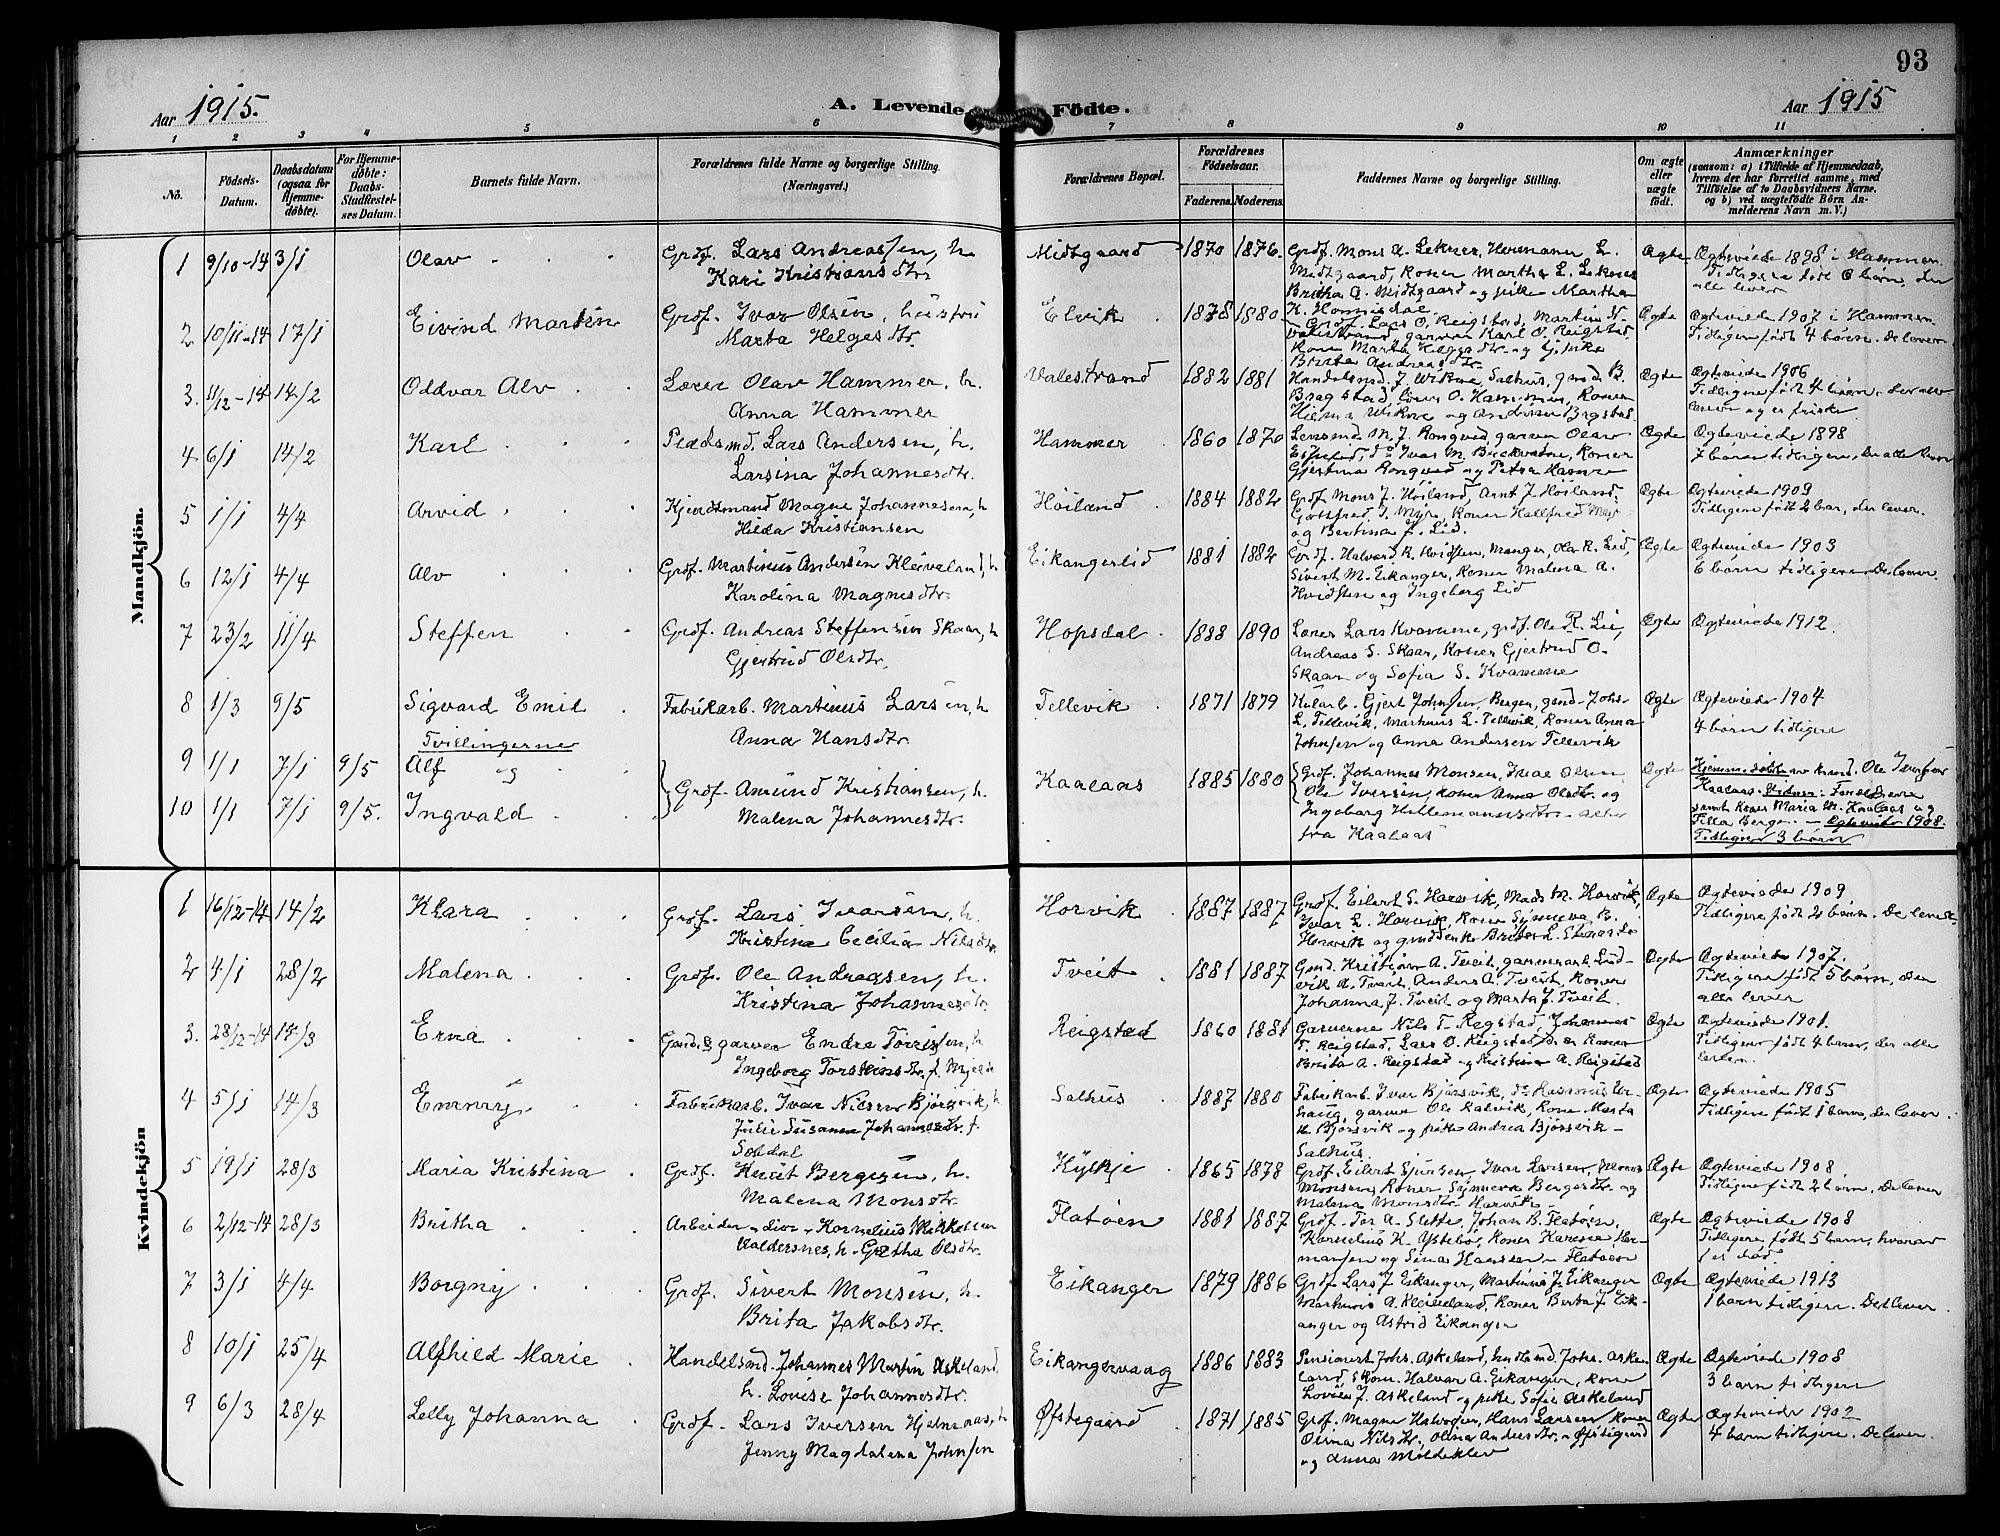 93
Aar 1915.
A. Levende Födte.
Aar 1915
1 2 3 4 5 6 7 8 9 10 11
No.
Födsels-Datum.
Daabsdatum (ogsaa for Hjemme-döbte).
For Hjemme-döbte: Daabs-Stadfæstel-ses Datum.
Barnets fulde Navn.
Forældrenes fulde Navne og borgerlige Stilling.
(Næringsvei.)
Forældrenes Bopæl.
Forældrenes Födselsaar.
Faderens. Moderens.
Faddernes Navne og borgerlige Stilling.
Om ægte eller uægte födt.
Anmærkninger
(saasom: a) i Tilfælde af Hjemmedaab,
hvem der har forrettet samme, med
Tilföielse af to Daabsvidners Navne.
og b) ved uægtefödte Börn An-
melderens Navn m. V.)
Mandkjön.
1 9/10-14 3/1 Olav Grdf. Lars Andreassen, h. Kari Kristiansdtr. Midtgaard 1870 1876 Grdf. Mons A. Leknes, Hermann L. Midtgaard, Koner Martha L. Leknes Britha A. Midtgaard og pike Martha K. Honnisdal Ægte Ægteviede 1898 i Hammer. Tidligere født 8 børn, der alle lever
2 10/11-14 17/1 Eivind Martin Grdf. Ivar Olsen, hustru Marta Helgesdtr. Elvik 1878 1880 Grdf. Lars O. Reigstad, Martin N. Valestrand, garver Karl O. Reigstad, Kone Marta Helgesdtr. og pike Brita Andreasdtr. Ægte Ægteviede 1907 i Hammer. Tidligere født 4 børn. De lever
3. 11/12-14 14/2 Oddvar Alv Lærer Olav Hammer, h. Anna Hammer Valestrand 1882 1881 Handelsmd. J. Wikne, Salhus, gmd. B. Bragstad, lærer O. Hammer, Koner Hjelma Wikne og Andersine Bragstad Ægte Ægteviede 1906 Tidligere født 4 børn, der alle lever og er friske
4 6/1 14/2 Karl Pladsmd. Lars Andersen, h. Larsina Johannesdtr. Hammer 1860 1870 Lensmd M. J. Rongved, garver Olav Ægte Ægteviede 1898 7 børn tidligere, De alle lever
5 1/1 4/4 Arvid Kjendtmand Magne Johannessen, h. Hilda Kristiansen Høiland 1884 1882 Grdf. Mons J. Høiland, Arnt J. Høiland, Gottfred J. Myr, Koner Hallfred Myr og Bertina J. Lid. Ægte Ægteviede 1909 Tidligere født 2 barn, der lever.
6 12/1 4/4 Alv Grdf. Martinus Andersen Kleiveland, h. Karolina Magnesdtr. Eikangerlid 1881 1882 Grdf. Halvard R. Hvidsten, Manger, Ola R. Lid, Sivert M. Eikanger, Koner Malena A. Hvidsten og Ingeborg Lid Ægte Ægteviede 1903 6 børn tidligere. De lever.
7 23/2 11/4 Steffen Grdf. Andreas Steffensen Skaar, h. Gjertrud Olsdtr. Hopsdal 1888 1890 Lærer Lars Kvamme, grdf. Ole R. Lie, Andreas S. Skaar, Koner Gjertrud O. Skaar og Sofia S. Kvamme Ægte Ægteviede 1912.
8 1/3 9/5 Sigvard Emil Fabrikarb. Martinus Larsen, h. Anna Hansdtr. Tellevik 1871 1879 Kularb. Gjert Johnsen, Bergen, gmd. Johs. L. Tellevik, Martinus L. Tellevik, Koner Anna Johnsen og Anna Andersen Tellevik Ægte Ægteviede 1904 4 børn tidligere
Tvillingerne
9 1/1 7/1 9/5 Alf og
10 1/1 7/1 9/5. Ingvald Grdf. Amund Kristiansen, h. Malena Johannesdtr. Kaalaas 1885 1880 Grdf. Johannes Monsen, Ivar Olsen Ole Iversen, koner Anna Olsdtr. og Ingeborg Hillemannsdtr. alle fra Kaalaas Ægte Hjemmedøbte av Ole Kaalaas. Vidner: Forældrene samt Kone Maria M. Kaalaas og Berge. Ægteviede 1908. Tidligere 3 børn
Kvindekjön
1 16/12-14 14/2 Klara Grdf. Lars Ivarsen, h. Kristina Cecilia Nilsdtr. Horvik 1887 1887 Grdf. Eilert S. Horvik, Mads M. Horvik, Ivar L. Horvik, Koner Synneva B. Horvik og Ægte Ægteviede 1909 Tidligere født 2 børn. De lever
2 4/1 28/2 Malena Grdf. Ole Andreassen, h. Kristina Johannesdtr. Tveit 1881 1887 Gmd. Kristian A. Tveit, garverarb. Ludvik A. Tveit, Anders A. Tveit, Koner Johanna J. Tveit og Marta J. Tveit. Ægte Ægteviede 1907. Tidligere født 5 børn, der alle lever
3. 28/12-14 14/3 Erna Gmd. & garver Endre Torrissen, h Ingeborg Torsteinsdtr. f. Mjelde Reigstad 1860 1881 Garverne Nils T. Reigstad, Johannes T. Reigstad, Lars O. Reigstad, Koner Brita A. Reigstad og Kristina A. Reigstad Ægte Ægteviede 1901. Tidligere født 4 børn, der alle lever.
4 5/1 14/3 Emmy Fabrikarb. Ivar Nilsen Bjørsvik, h Julie Susanne Johannesdtr. f. Sobdal Salhus 1887 1880 Fabrikarb. Ivar Bjørsvik, garver Ole Kalvik, Kone Marta Bjørsvik og pike Andrea Bjørsvik - Salhus. Ægte Ægteviede 1905 Tidligere født 1 barn, De lever
5 19/1 28/3 Maria Kristina Grdf. Knut Bergesen, h. Malena Monsdtr. Hylkje 1865 1878 Grdf. Eilert Sjursen, Ivar Larsen, Mons Monsen, Koner Synneva Bergesdtr. og Malena Monsdtr. Horvik Ægte Ægteviede 1908. Tidligere født 2 børn, De lever
6 2/12-14 28/3 Britha Arbeider - div - Kornelius Mikkelsen Valdersnes, h. Gjertha Olsdtr. Flatøen 1881 1887 Grdf. Tor A. Slette, Johan B. Flatøen, Kornelius K. Ystebø, Koner Karen Hermansen og Sina Hansen - Flatøen Ægte Ægteviede 1908 Tidligere født 5 børn, hvorav 1 er død
7 3/1 4/4 Borgny Grdf. Sivert Monsen, h. Brita Jakobsdtr. Eikanger 1879 1886 Grdf. Lars J. Eikanger, Martinus J. Eikanger Martinus A. Kleiveland, Koner Berta J. Eikanger og Astrid Eikanger Ægte Ægteviede 1913 1 barn tidligere. Det lever
8 10/1 25/4 Alfhild Marie Handelsmd. Johannes Martin Askeland, h. Lovise Johannesdtr. Eikangervaag 1886 1883 Pensionist Johs. Askeland, Johs. Askeland, Skom. Halvar A. Eikanger, Kone Lovise J. Askeland og pike Sofie Askeland Ægte Ægteviede 1908 3 børn tidligere
9 6/3 28/4 Lelly Johanna Grdf. Lars Iversen Hjelmaas, h Jenny Magdalena Johnsen Øfstegaard 1871 1885 Grdf. Magne Halvorsen, Hans Larsen, Koner Olina Nilsdtr., Olina Andersdtr. - Øfstegaard og Anna Moldeklev Ægte Ægteviede 1902 4 børn tidligere. De lever.